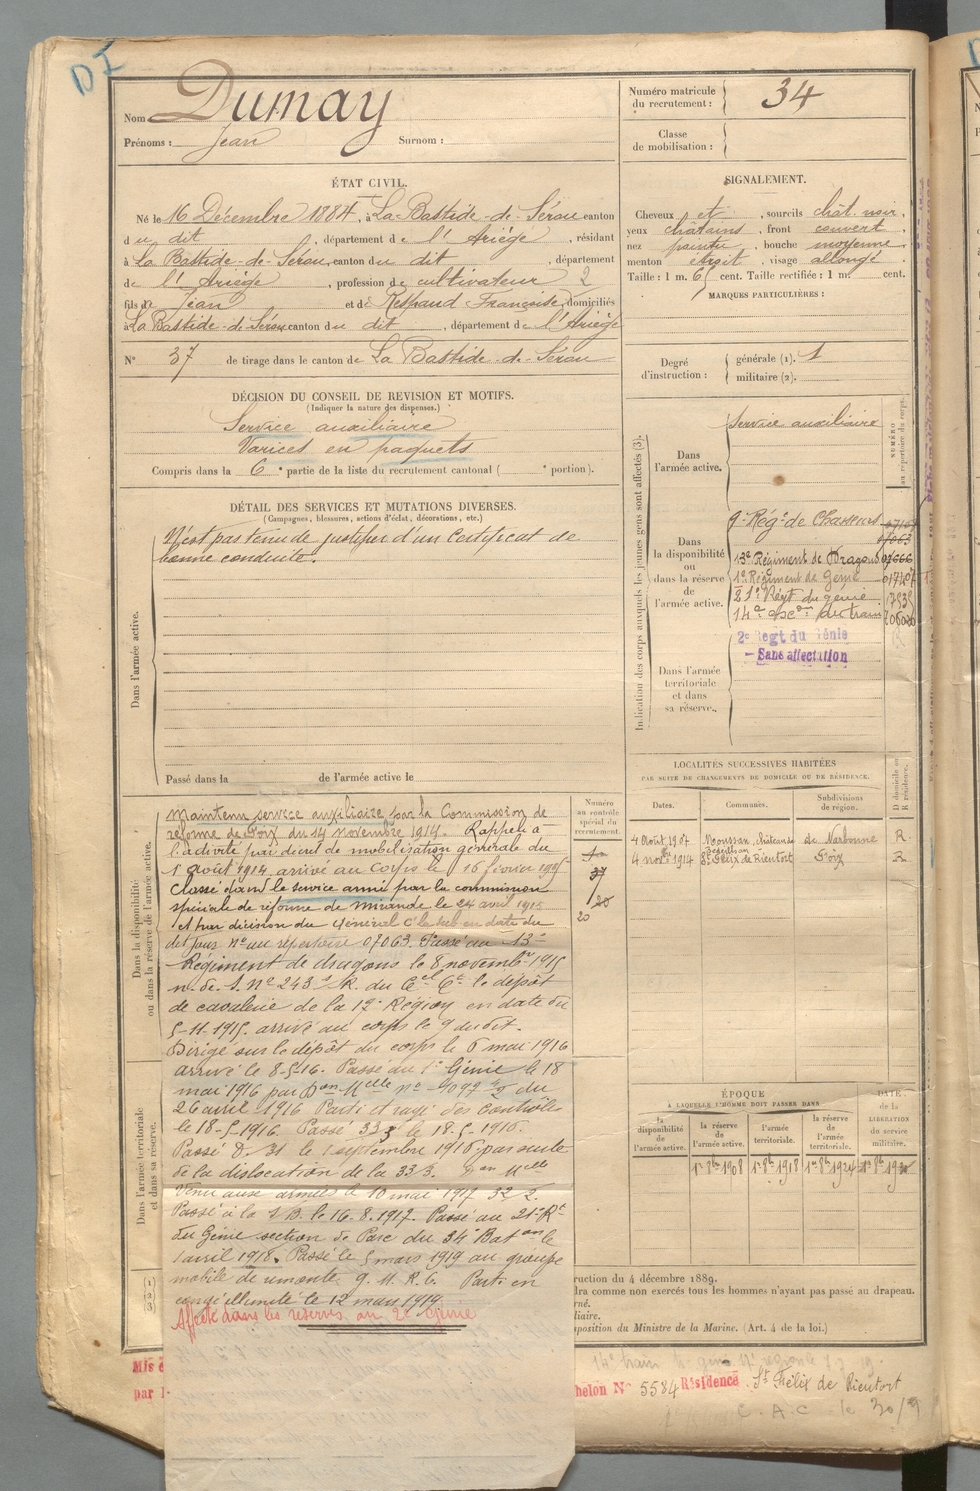 DI
Nom Dumay
Prénoms : Jean Surnom :
Numéro matricule du recrutement : 34
Classe de mobilisation :
ÉTAT CIVIL.
Né le 16 Décembre 1884, à La-Bastide-de-Sérou canton
du dit, département de l'Ariége, résidant
à La Bastide-de-Serou, canton du dit, département
de l'Ariége, profession de cultivateur 2
fils de Jean et de Respaud Françoise, domiciliés
à La Bastide-de-Sérou canton du dit, département de l'Ariége
N° 37 de tirage dans le canton de La Bastide-de-Sérou
SIGNALEMENT.
Cheveux et, sourcils chât noir,
yeux châtains, front couvert
nez pointu, bouche moyenne
menton étroit, visage allongé
Taille : 1 m. 65 cent. Taille rectifiée : 1 m. cent.
MARQUES PARTICULIÈRES :
Degré d'instruction :
générale (1). 1
militaire (2).
DÉCISION DU CONSEIL DE REVISION ET MOTIFS.
(Indiquer la nature des dispenses.)
Service auxiliaire
Varices en paquets
Compris dans la 6e partie de la liste du recrutement cantonal ( e portion).
DÉTAIL DES SERVICES ET MUTATIONS DIVERSES.
(Campagnes, blessures, actions d'éclat, décorations, etc.)
Dans l'armée active.
N'est pas tenu de justifier d'un certificat de
bonne conduite.
Passé dans la de l'armée active le
Indication des corps auxquels les jeunes gens sont affectés (3).
NUMÉRO au répertoire du corps.
Dans l'armée active.
Service auxiliaire
Dans la disponibilité ou dans la réserve de l'armée active.
9e Régt de Chasseurs
07063
13e Régiment de Dragons
1er Régiment de Génie
21e Régt du génie
14e Escon du train
2e Regt du Génie
Sans affectation
Dans l'armée territoriale et dans sa réserve.
LOCALITÉS SUCCESSIVES HABITÉES
PAR SUITE DE CHANGEMENTS DE DOMICILE OU DE RÉSIDENCE.
Dates. Communes. Subdivisions de région. D domicile ou R résidence.
4 Août 1907 Moussan, château de de Narbonne R
4 nov 1914 St Félix de Rieutort Foix R
Dans la disponibilité ou dans la réserve de l'armée active.
Numéro au contrôle spécial du recrutement.
37
20
Maintenu service auxiliaire par la Commission de
réforme de Foix du 14 novembre 1914. Rappelé à
l'activité par décret de mobilisation générale du
1 Août 1914 arrivé au Corps le 16 février 1915
Classé dans le service armé par la commission
spéciale de réforme de Mirande le 24 avril 1915
et par décision du Général Ct la sub en date du
dit jour n° au répertoire 07063. Passé au 13e
Régiment de dragons le 8 novembre 1915
n. de. S. N° 243 R. du Cel Ct le dépôt
de cavalerie de la 17e Région en date du
5-11-1915. arrivé au corps le 9 du dit.
Dirigé sur le dépôt du corps le 6 mai 1916
arrivé le 8-5-16. Passé au 1er Génie le 18
mai 1916 par Don Melle n° 4097 du
26 avril 1916 Parti et rayé des contrôles
le 18-5-1916. Passé 33 3 le 18-5-1916.
Passé D. 31 le 1 septembre 1916 par suite
de la dislocation de la 33 3.
Venu aux armées le 10 mai 1917 32 2.
Passé à la 1 B. le 16.8.1917. Passé au 21e Rt
du Génie section de Parc du 34e Baton le
1 avril 1918. Passé le 5 mars 1919 au groupe
mobile de remonte, G. M. R. 6. Parti en
congé illimité le 12 mars 1919.
Affecté dans les réserves au 2e Génie
Dans l'armée territoriale et dans sa réserve.
ÉPOQUE
À LAQUELLE L'HOMME DOIT PASSER DANS
la disponibilité de l'armée active. la réserve de l'armée active. l'armée territoriale. la réserve de l'armée territoriale.
DATE de la LIBÉRATION du service militaire.
1er 8bre 1908 1er 8bre 1918 1er 8bre 1924
(1)
(2)
(3)
ruction du 4 décembre 1889.
dra comme non exercés tous les hommes n'ayant pas passé au drapeau.
rné.
liaire.
sposition du Ministre de la Marine. (Art. 4 de la loi.)
Mis é
par l
helon N° 5584 Résidence St Félix de Rieutort
C. A. C. le 30/9